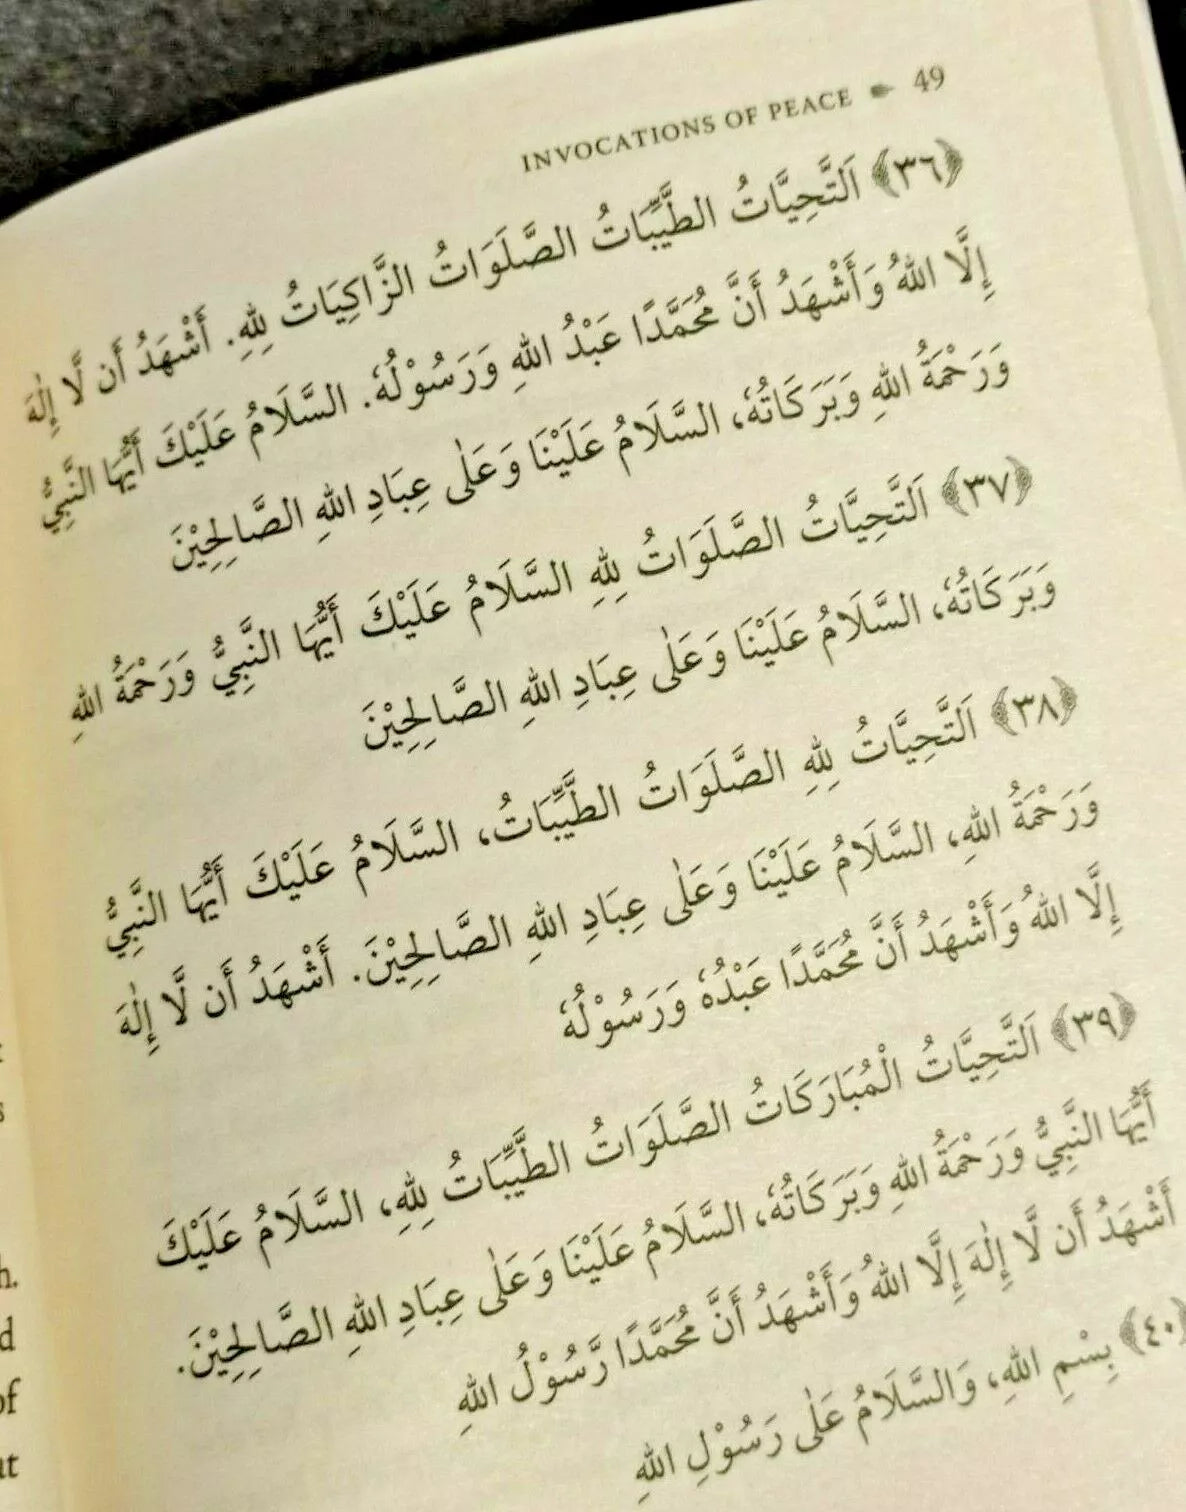 INVOCATIONS OF PEACE 49
﴿٣٦﴾ اَلتَّحِيَّاتُ الطَّيِّبَاتُ الصَّلَوَاتُ الزَّاكِيَاتُ لِلّٰهِ. أَشْهَدُ أَن لَّا إِلٰهَ
إِلَّا اللهُ وَأَشْهَدُ أَنَّ مُحَمَّدًا عَبْدُ اللهِ وَرَسُوْلُهٗ. السَّلَامُ عَلَيْكَ أَيُّهَا النَّبِيُّ
وَرَحْمَةُ اللهِ وَبَرَكَاتُهٗ، السَّلَامُ عَلَيْنَا وَعَلٰى عِبَادِ اللهِ الصَّالِحِيْنَ
﴿٣٧﴾ اَلتَّحِيَّاتُ الصَّلَوَاتُ لِلّٰهِ السَّلَامُ عَلَيْكَ أَيُّهَا النَّبِيُّ وَرَحْمَةُ اللهِ
وَبَرَكَاتُهٗ، السَّلَامُ عَلَيْنَا وَعَلٰى عِبَادِ اللهِ الصَّالِحِيْنَ
﴿٣٨﴾ اَلتَّحِيَّاتُ لِلّٰهِ الصَّلَوَاتُ الطَّيِّبَاتُ، السَّلَامُ عَلَيْكَ أَيُّهَا النَّبِيُّ
وَرَحْمَةُ اللهِ، السَّلَامُ عَلَيْنَا وَعَلٰى عِبَادِ اللهِ الصَّالِحِيْنَ. أَشْهَدُ أَن لَّا إِلٰهَ
إِلَّا اللهُ وَأَشْهَدُ أَنَّ مُحَمَّدًا عَبْدُهٗ وَرَسُوْلُهٗ
﴿٣٩﴾ اَلتَّحِيَّاتُ الْمُبَارَكَاتُ الصَّلَوَاتُ الطَّيِّبَاتُ لِلّٰهِ، السَّلَامُ عَلَيْكَ
أَيُّهَا النَّبِيُّ وَرَحْمَةُ اللهِ وَبَرَكَاتُهٗ، السَّلَامُ عَلَيْنَا وَعَلٰى عِبَادِ اللهِ الصَّالِحِيْنَ.
أَشْهَدُ أَن لَّا إِلٰهَ إِلَّا اللهُ وَأَشْهَدُ أَنَّ مُحَمَّدًا رَّسُوْلُ اللهِ
﴿٤٠﴾ بِسْمِ اللهِ، وَالسَّلَامُ عَلٰى رَسُوْلِ اللهِ